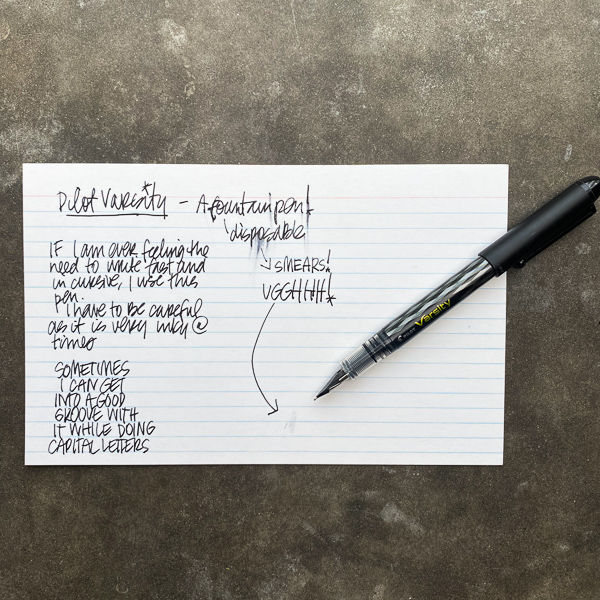 Pilot Varsity - A fountain pen!
disposable
SMEARS!
UGGHHH!
IF I am ever feeling the
need to write fast and
in cursive, I use this
pen.
I have to be careful
as it is very inky @
times
SOMETIMES
I CAN GET
INTO A GOOD
GROOVE WITH
IT WHILE DOING
CAPITAL LETTERS
PILOT Varsity